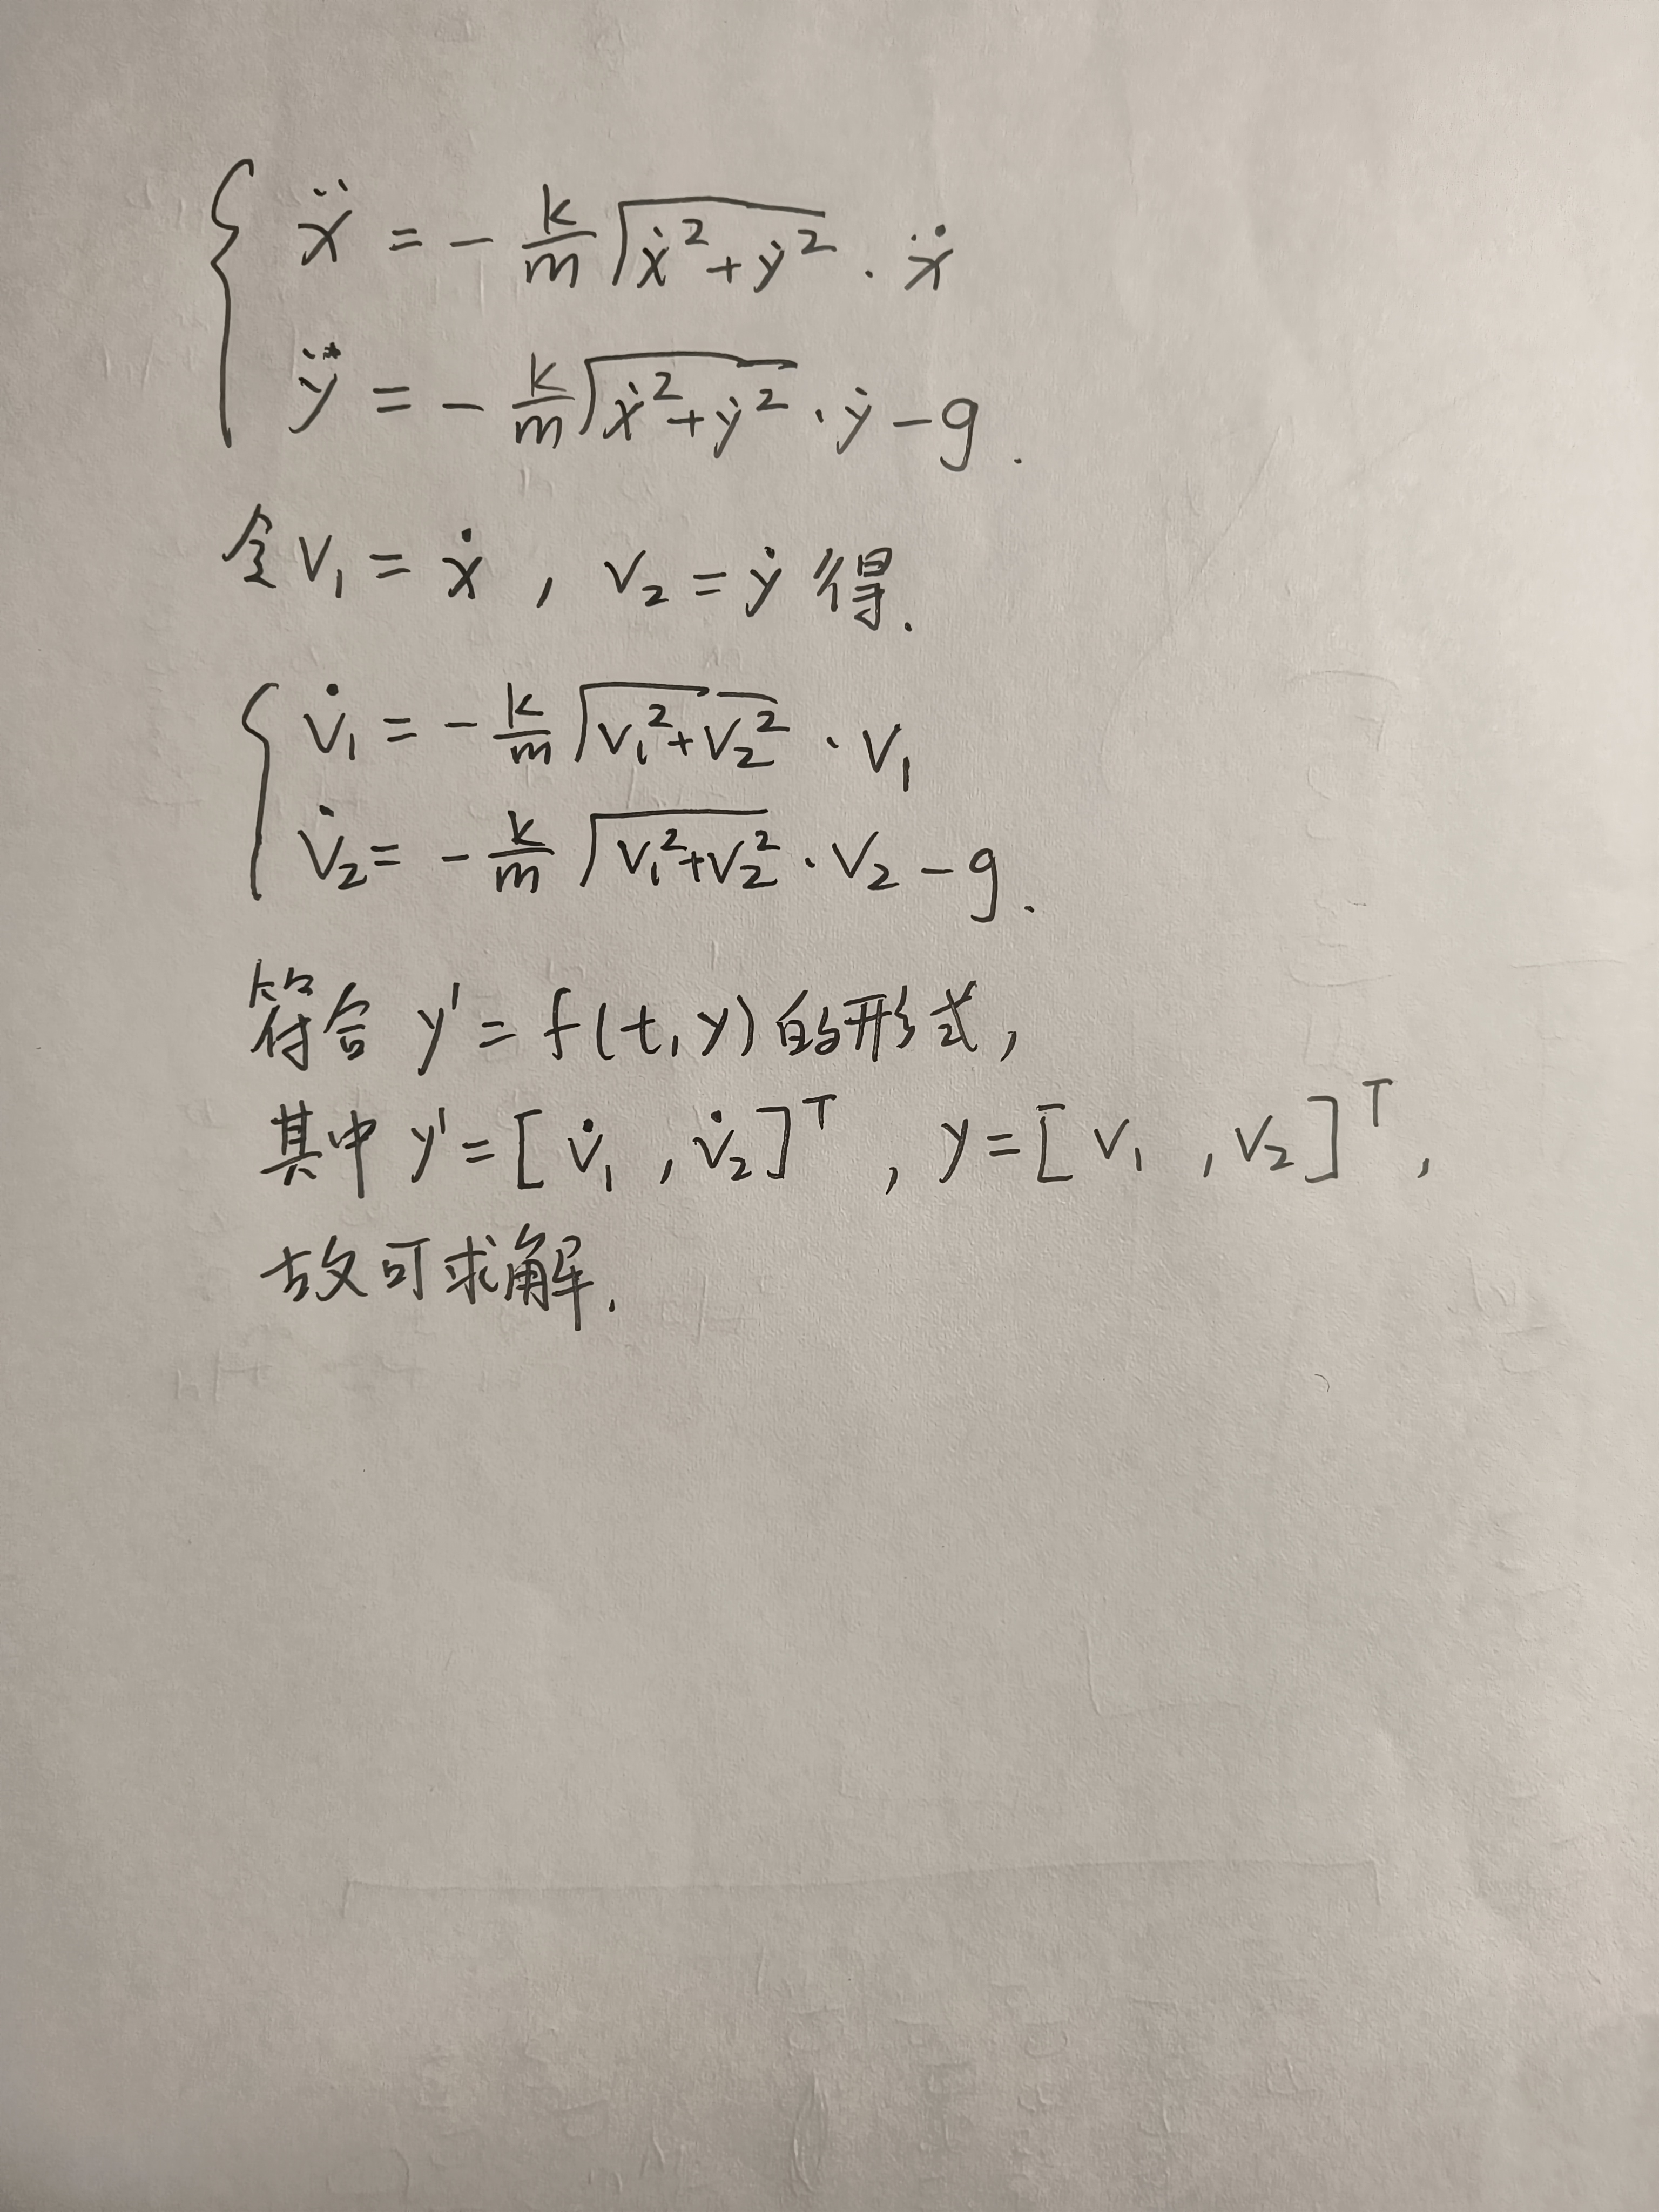 ẍ = - k/m √(ẋ²+ẏ²) · ẍ
ÿ = - k/m √(ẋ²+ẏ²) · ẏ - g.
令 V₁ = ẋ , V₂ = ẏ 得.
V̇₁ = - k/m √(V₁²+V₂²) · V₁
V̇₂ = - k/m √(V₁²+V₂²) · V₂ - g.
符合 y' = f(t, y) 的形式,
其中 y' = [ V̇₁ , V̇₂ ]ᵀ , y = [ V₁ , V₂ ]ᵀ ,
故可求解.